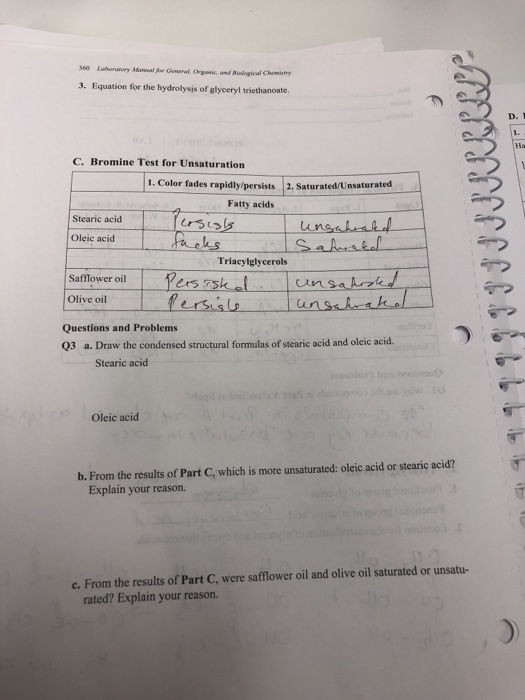 360 Laboratory Manual for General, Organic, and Biological Chemistry
3. Equation for the hydrolysis of glyceryl triethanoate.
D.
1.
Ha
C. Bromine Test for Unsaturation
1. Color fades rapidly/persists 2. Saturated/Unsaturated
Fatty acids
Stearic acid Persists unsaturated
Oleic acid fades Saturated
Triacylglycerols
Safflower oil Persisted unsaturated
Olive oil Persists unsaturated
Questions and Problems
Q3 a. Draw the condensed structural formulas of stearic acid and oleic acid.
Stearic acid
Oleic acid
b. From the results of Part C, which is more unsaturated: oleic acid or stearic acid?
Explain your reason.
c. From the results of Part C, were safflower oil and olive oil saturated or unsatu-
rated? Explain your reason.